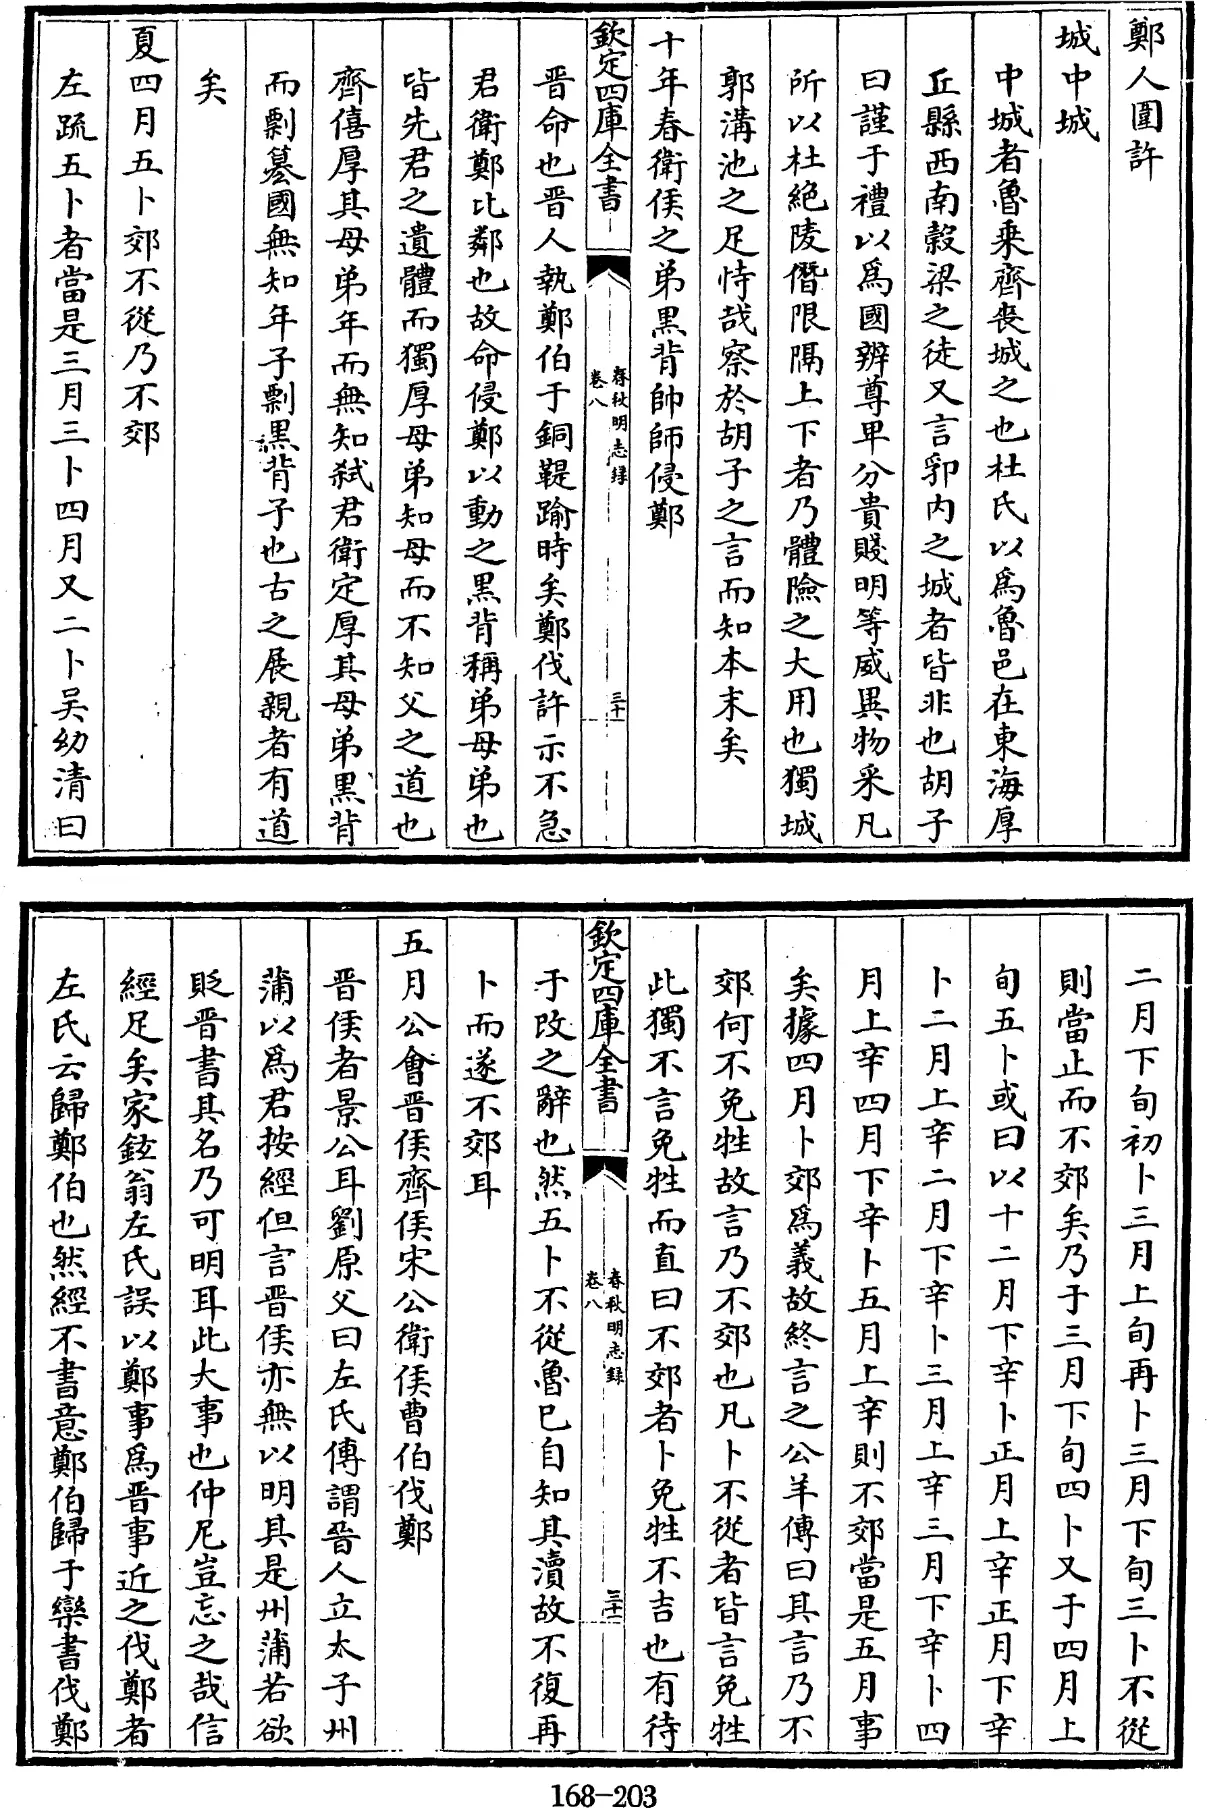 鄭人圍許
城中城
中城者魯乘齊喪城之也杜氏以爲魯邑在東海厚
丘縣西南穀梁之徒又言郛内之城者皆非也胡子
曰謹于禮以爲國辨尊卑分貴賤明等威異物采凡
所以杜絶陵僭限隔上下者乃體險之大用也獨城
郭溝池之足恃哉察於胡子之言而知本末矣
十年春衛侯之弟黒背帥師侵鄭
欽定四庫全書
春秋明志録
卷八
三十
晉命也晉人執鄭伯于銅鞮踰時矣鄭伐許示不急
君衛鄭比鄰也故命侵鄭以動之黒背稱弟母弟也
皆先君之遺體而獨厚母弟知母而不知父之道也
齊僖厚其母弟年而無知弑君衛定厚其母弟黒背
而剽簒國無知年子剽黒背子也古之展親者有道
矣
夏四月五卜郊不從乃不郊
左疏五卜者當是三月三卜四月又二卜吴幼清曰
二月下旬初卜三月上旬再卜三月下旬三卜不從
則當止而不郊矣乃于三月下旬四卜又于四月上
旬五卜或曰以十二月下辛卜正月上辛正月下辛
卜二月上辛二月下辛卜三月上辛三月下辛卜四
月上辛四月下辛卜五月上辛則不郊當是五月事
矣據四月卜郊爲義故終言之公羊傳曰其言乃不
郊何不免牲故言乃不郊也凡卜不從者皆言免牲
此獨不言免牲而直曰不郊者卜免牲不吉也有待
欽定四庫全書
春秋明志録
卷八
三十一
于改之辭也然五卜不從魯已自知其瀆故不復再
卜而遂不郊耳
五月公會晉侯齊侯宋公衛侯曹伯伐鄭
晉侯者景公耳劉原父曰左氏傳謂晉人立太子州
蒲以爲君按經但言晉侯亦無以明其是州蒲若欲
貶晉書其名乃可明耳此大事也仲尼豈忘之哉信
經足矣家鉉翁左氏誤以鄭事爲晉事近之伐鄭者
左氏云歸鄭伯也然經不書意鄭伯歸于欒書伐鄭
168-203